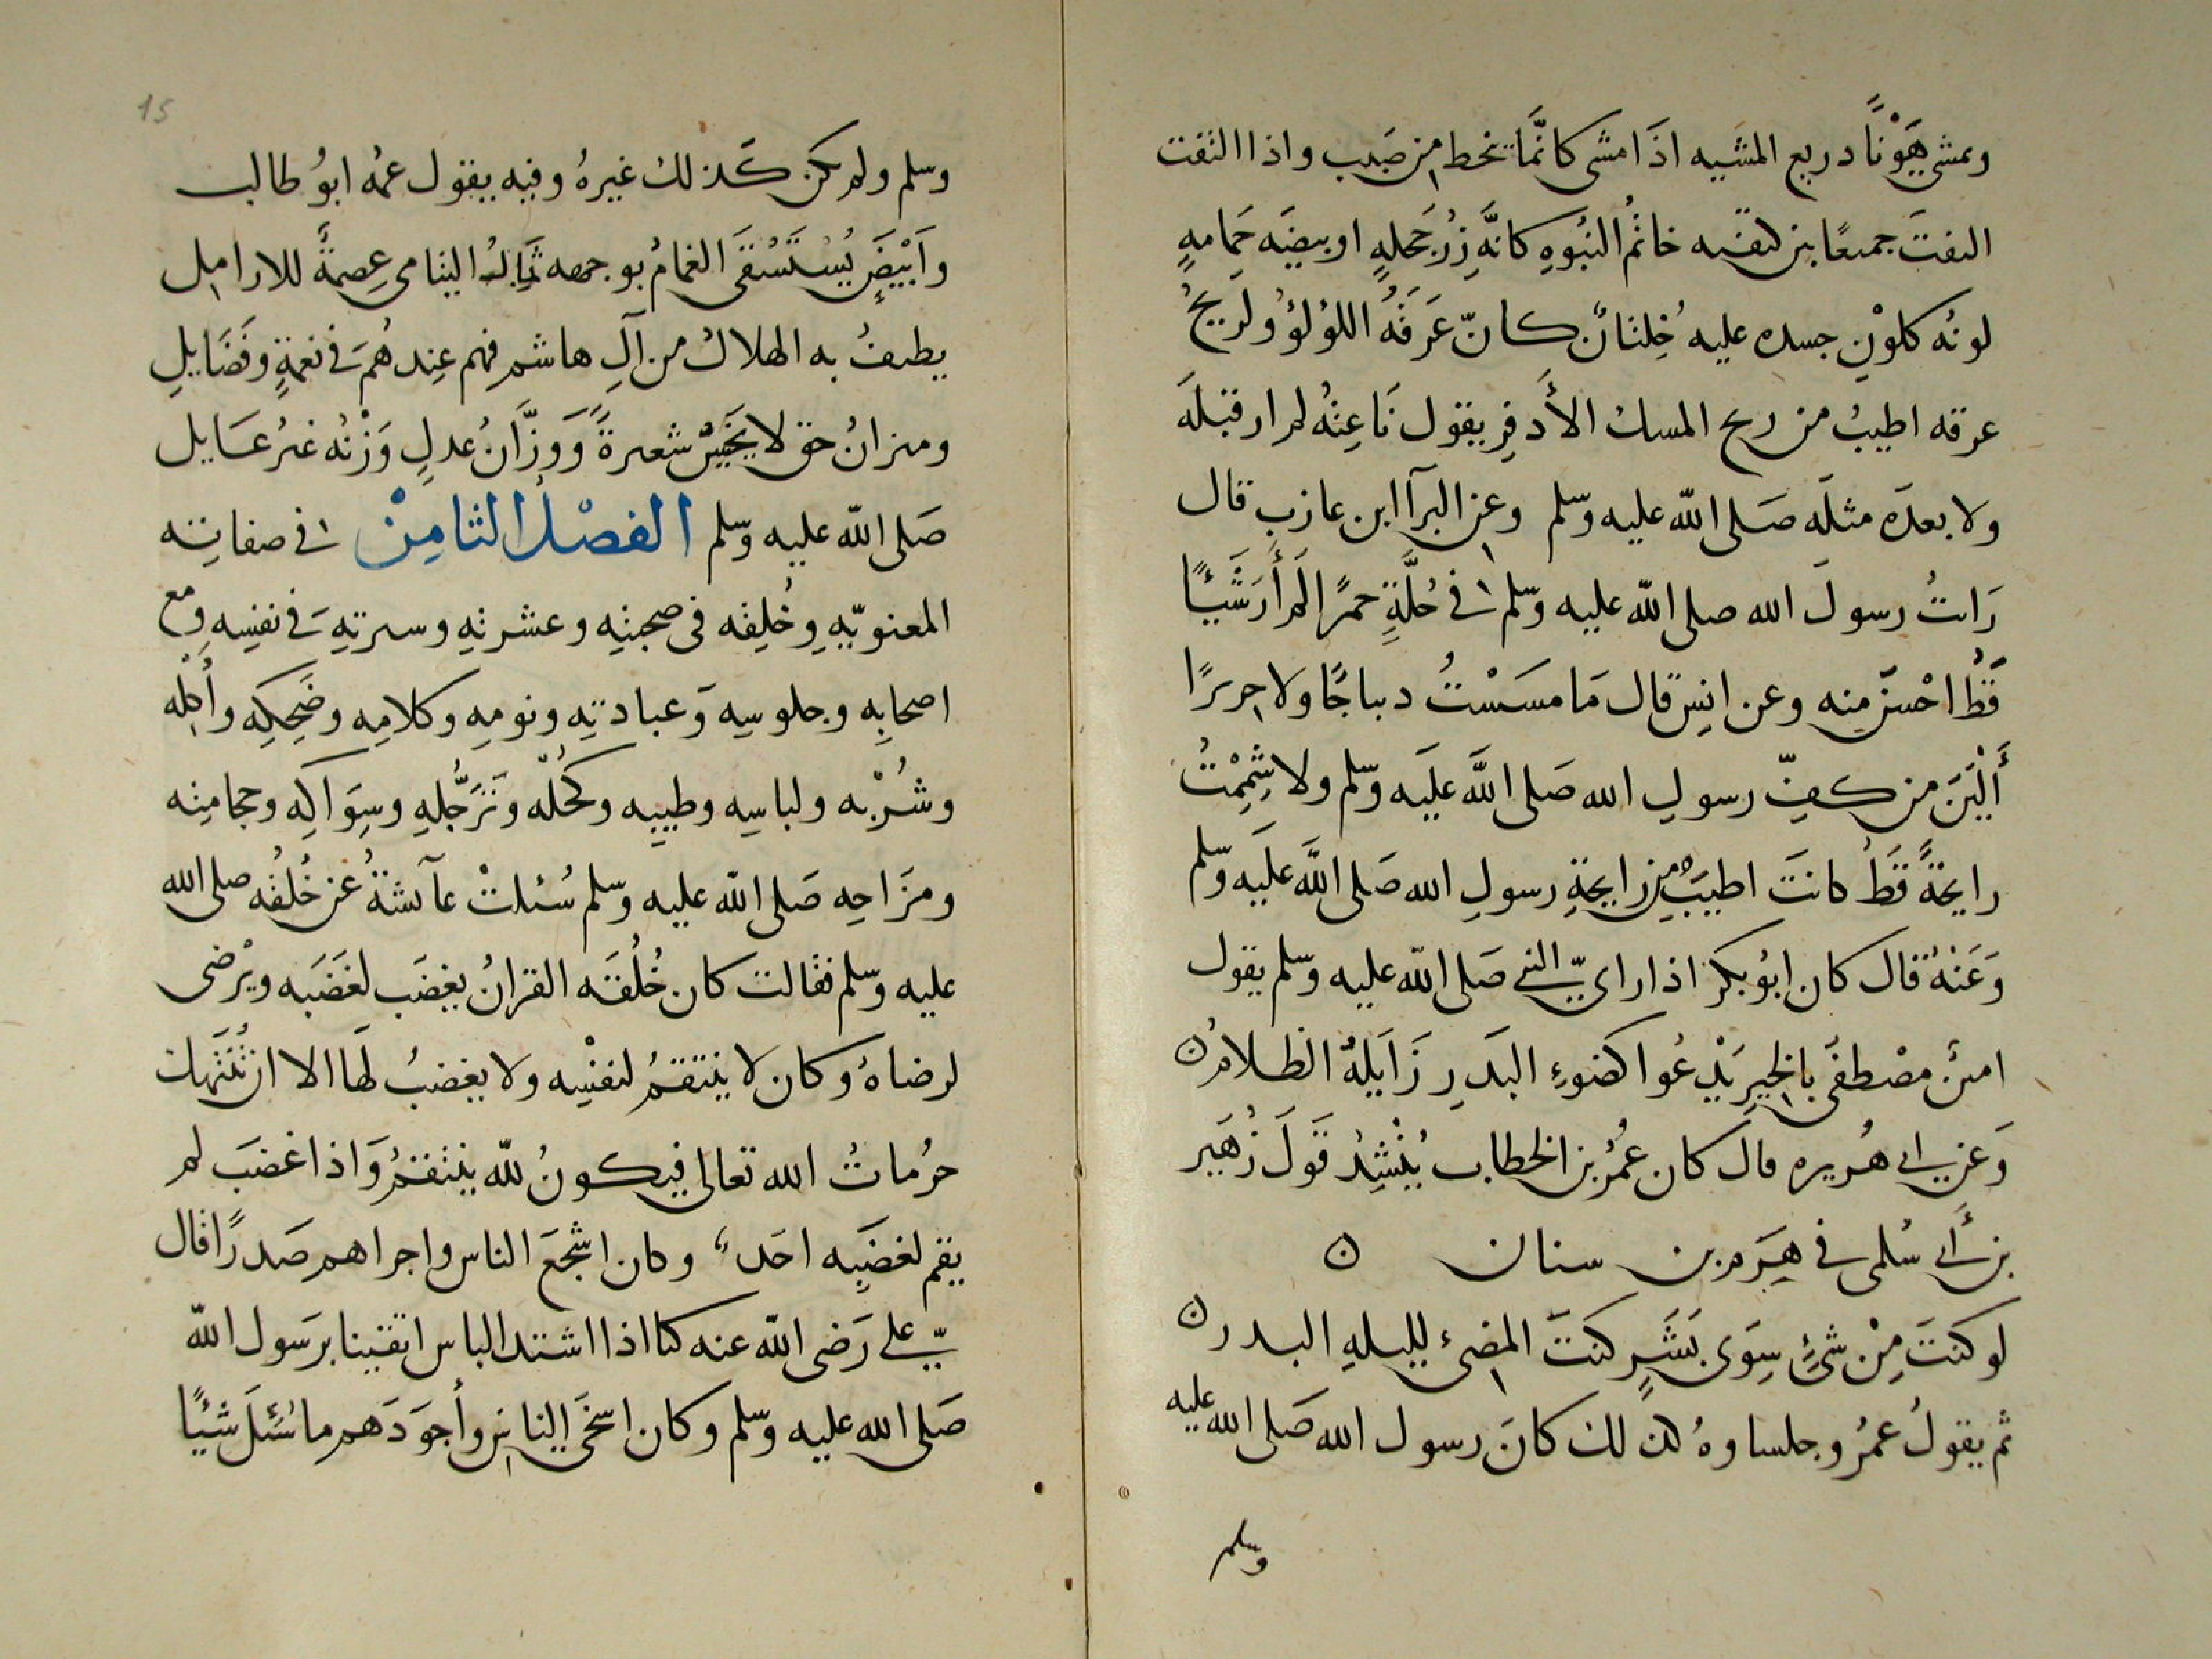 ويمشي هَوْنًا دريع المشيه اذَا مشى كانّما تنحط من صَبب واذا التفت
التفتَ جميعًا بين كتفيه خاتمُ النبُوهِ كانَّه زِرُ حَجَلهٍ او بيضَه حَمامهٍ
لونُه كلوْنِ جسده عليه خِيلانٌ كانّ عَرَقَهُ اللؤلؤُ ولَرِيحُ
عرقه اطيبُ من ريح المسك الأَدفِر يقول نَاعِتُه لم ار قبلَه
ولا بعدَه مثلَه صَلى الله عليه وسّلم وعن البرآ ابن عازب قال
رَاتُ رسولَ الله صلى الله عليه وسّلم في حُلَّةٍ حمرًا لَم أَرَ شَيْئًا
قَطُّ احْسنَ منِه وعن انس قال مَا مسَسْتُ ديباجًا ولا حريرًا
أَلْيَنَ من كفِّ رسولِ الله صَلى اللَّه علَيه وسّلم ولا شِمِمْتُ
رايحَةً قَطُ كانتَ اطيبَ من رايحةِ رسولِ الله صَلى اللَّه علَيه وسّلم
وَعَنْهُ قال كان ابوُ بكر اذا راى النبيّ صَلى الله عليه وسّلم يقول
امينٌ مصْطفَى بالخيرِ يَدْعُوا كضوءِ البَدرِ زَايَلهُ الظلامُ ن
وَعن ابي هُريره قال كان عُمَرُ بن الخطاب يُنْشِدُ قَولَ زُهَير
بن أَبي سُلمى في هَرَم بن سنان ن
لو كنتَ مِنْ شئٍ سِوَى بَشَرٍ كنتَ المضئ لليله البدر ن
ثم يقولُ عمرُ وجلساوهُ كذلك كانَ رسول الله صَلى الله عليه
وسلم
15
وسّلم ولم يكن كَذلك غيرهُ وفيه يقول عمُه ابوُ طالب
وأَبيَضَ يُسْتَسْقَى الغمامُ بوجهه ثمالُ اليتامى عِصمةً للارامل
يطيفُ به الهلاك من آلِ هاشم فهم عِندهُم في نعمةٍ وفَضَايلِ
وميزانُ حق لا يخيسُ شعيرةً وَوزَّانُ عدلٍ وَزْنُه غيرُ عَايل
صَلى الله عليه وسّلم الفصْلُ الثامِنْ في صفاته
المعنويّهِ وخُلقِه في صحبتِه وعشرتِه وسيرتهِ في نفسِه ومع
اصحابِه وجلوسِه وَعبادتِه ونومِه وكلامِه وضَحِكِه وأُكلِه
وشُرْبه ولباسِه وطيبِه وكُحلُه وتَرَجُّلهِ وسِوَاكِه وحجامتِه
ومزَاحِه صَلى الله عليه وسّلم سُئلتْ عآئشةُ عَن خُلقُه صلى الله
عليه وسّلم فقالت كان خُلُقَه القرانُ يغضَب لغَضَبه ويرْضى
لرضاهُ وكان لا ينتقمُ لنفسِه ولا يغضبُ لَها الا ان تُنتَهك
حرُماتُ الله تعالى فيكونُ للّه ينتقمُ وَاذا غضبَ لم
يقم لغضبِه احَد وكان اشجعَ الناس واجراهم صَدرًا قال
علي رَضى الله عنه كنا اذا اشتد الباس اتقينا برَسول الله
صَلى الله عليه وسّلم وكان اسخَى الناسِ وأجوَدَهم ما سُئِلَ شيْئًا